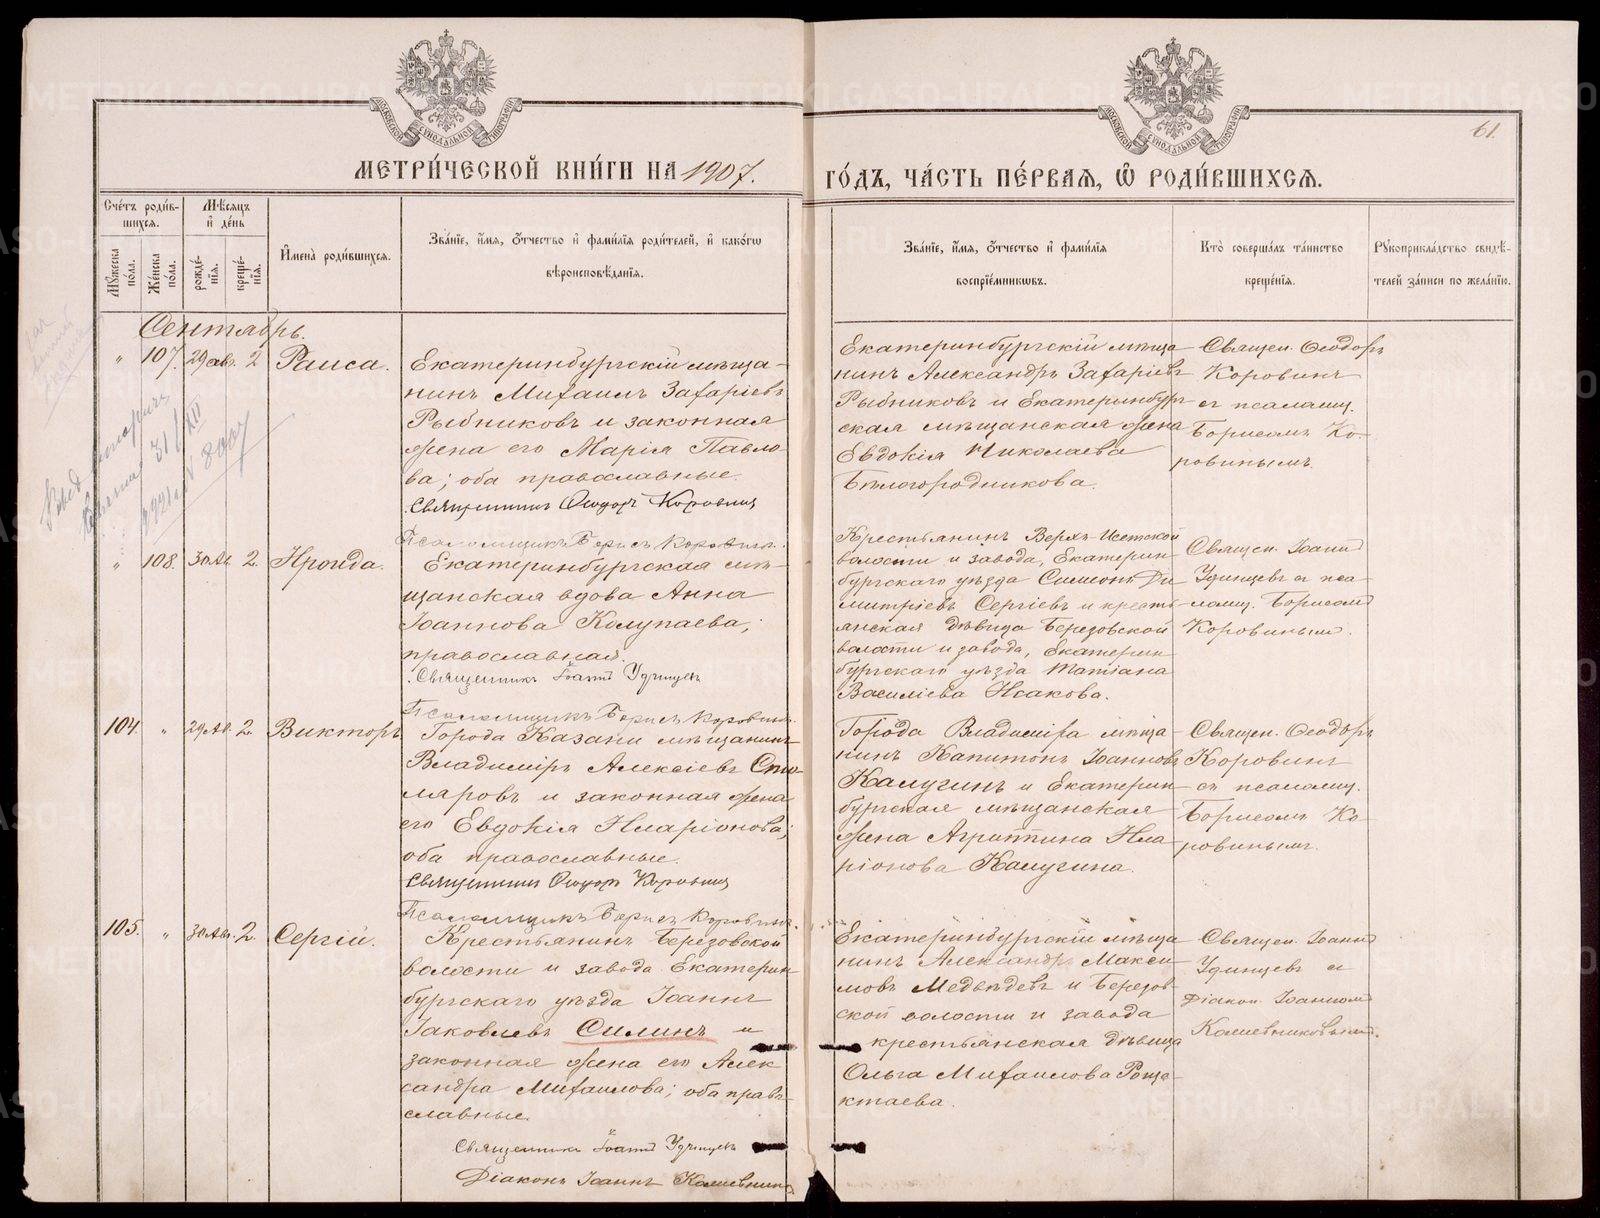 МОСКОВСКОЙ СѴНОДАЛЬНОЙ ТИПОГРАФІИ
МОСКОВСКОЙ СѴНОДАЛЬНОЙ ТИПОГРАФІИ
61.
МЕТРИ́ЧЕСКОЙ КНИ́ГИ НА 1907.
ГО́ДЪ, ЧА́СТЬ ПЕ́РВАѦ, Ѡ҆ РОДИ́ВШИХСѦ.
Сче́тъ роди́в-
шихсѧ.
Мꙋ́жеска по́ла.
Же́нска по́ла.
Мѣ́сѧцъ
и҆ де́нь
рожде́-
нїѧ.
креще́-
нїѧ.
И҆мена̀ роди́вшихсѧ.
Зва́нїе, и҆́мѧ, ѻ҆́тчество и҆ фами́лїѧ роди́телей, и҆ како́гѡ
вѣроисповѣ́данїѧ.
Зва́нїе, и҆́мѧ, ѻ҆́тчество и҆ фами́лїѧ
воспрїе́мникѡвъ.
Кто̀ соверша́лъ та́инство
креще́нїѧ.
Рꙋкоприкла́дство свидѣ́-
телей за́писи по жела́нїю.
Сентябрь.
" 107. 29 авг. 2 Раиса.
Екатеринбургскій мѣща-
нинъ Михаилъ Захаріевъ
Рыбниковъ и законная
жена его Марія Павло-
ва; оба православные.
Священникъ Ѳеодоръ Коровинъ
Псаломщикъ Борисъ Коровинъ.
Екатеринбургскій мѣща-
нинъ Александръ Захаріевъ
Рыбниковъ и Екатеринбург-
ская мѣщанская жена
Евдокія Николаева
Бѣлогородникова.
Священ. Ѳеодоръ
Коровинъ
съ псаломщ.
Борисомъ Ко-
ровинымъ.
31/XII
" 108. 30 Ав. 2. Ираида.
Екатеринбургская мѣ-
щанская вдова Анна
Іоаннова Колупаева;
православная.
Священникъ Іоаннъ Удинцевъ
Псаломщикъ Борисъ Коровинъ.
Крестьянинъ Верхъ-Исетской
волости и завода, Екатерин-
бургскаго уѣзда Симеонъ Ди-
митріевъ Сергіевъ и кресть-
янская дѣвица Березовской
волости и завода, Екатерин-
бургскаго уѣзда Татіана
Василіева Исакова.
Священ. Іоаннъ
Удинцевъ съ пса-
ломщ. Борисомъ
Коровинымъ.
104. " 29 Ав. 2. Викторъ
Города Казани мѣщанинъ
Владиміръ Алексіевъ Сто-
ляровъ и законная жена
его Евдокія Иларіонова;
оба православные.
Священникъ Ѳеодоръ Коровинъ
Псаломщикъ Борисъ Коровинъ.
Города Владиміра мѣща-
нинъ Капитонъ Іоанновъ
Калугинъ и Екатерин-
бургская мѣщанская
жена Агриппина Ила-
ріонова Калугина.
Священ. Ѳеодоръ
Коровинъ
съ псаломщ.
Борисомъ Ко-
ровинымъ.
105. " 30 Ав. 2. Сергій.
Крестьянинъ Березовской
волости и завода Екатерин-
бургскаго уѣзда Іоаннъ
Іаковлевъ Силинъ и
законная жена его Алек-
сандра Михаилова; оба право-
славные.
Священникъ Іоаннъ Удинцевъ
Діаконъ Іоаннъ
Екатеринбургскій мѣща-
нинъ Александръ Макси-
мовъ Медвѣдевъ и Березов-
ской волости и завода
крестьянская дѣвица
Ольга Михаилова
Священ. Іоаннъ
Удинцевъ съ
діакон. Іоанномъ
METRIKI.GASO-URAL.RU